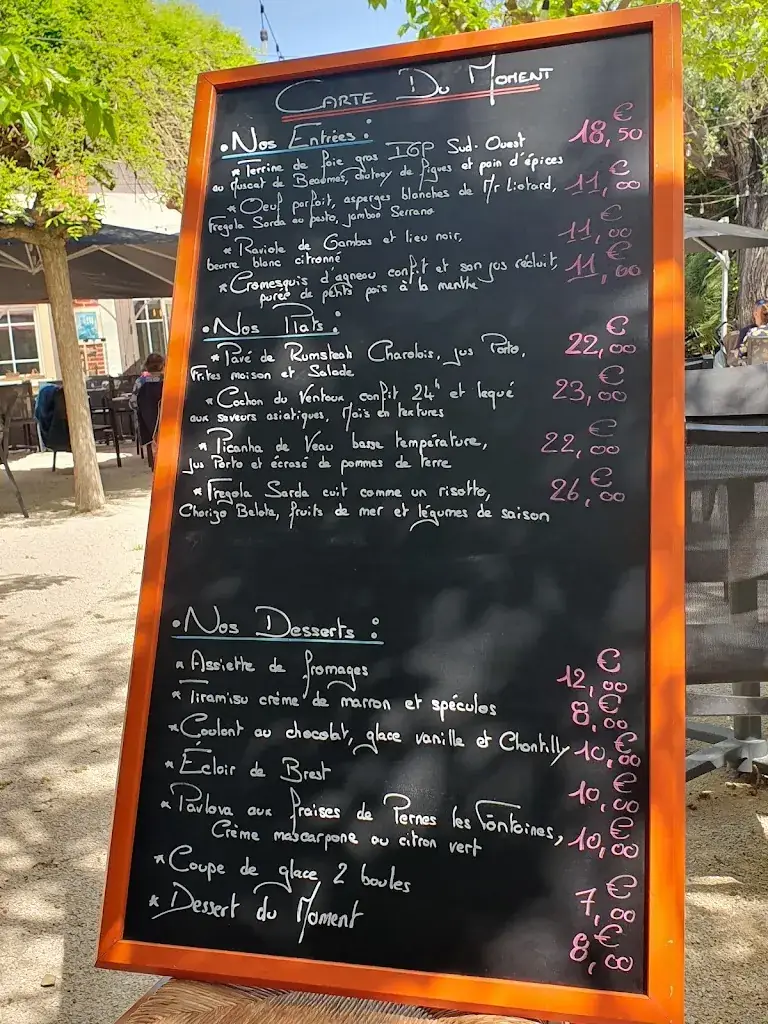 Carte Du Moment
• Nos Entrées :
* Terrine de foie gras IGP Sud-Ouest 18,50 €
au Muscat de Beaumes, chutney de figues et pain d'épices
* Oeuf parfait, asperges blanches de Mr Liotard, 11,00 €
Fregola Sarda au pesto, jambon Serrano
* Raviole de Gambas et lieu noir, 11,00 €
beurre blanc citronné
* Cromesquis d'agneau confit et son jus réduit, 11,00 €
purée de petits pois à la menthe
• Nos Plats :
* Pavé de Rumsteak Charolais, jus Porto, 22,00 €
Frites maison et Salade
* Cochon du Ventoux confit 24h et laqué 23,00 €
aux saveurs asiatiques, Maïs en textures
* Picanha de Veau basse température, 22,00 €
Jus Porto et écrasé de pommes de terre
* Fregola Sarda cuit comme un risotto, 26,00 €
Chorizo Belota, fruits de mer et légumes de saison
• Nos Desserts :
* Assiette de fromages 12,00 €
* Tiramisu crème de marron et spéculos 8,00 €
* Coulant au chocolat, glace vanille et Chantilly 10,00 €
* Éclair de Brest 10,00 €
* Pavlova aux fraises de Pernes les Fontaines, 10,00 €
Crème mascarpone au citron vert
* Coupe de glace 2 boules 7,00 €
* Dessert du Moment 8,00 €